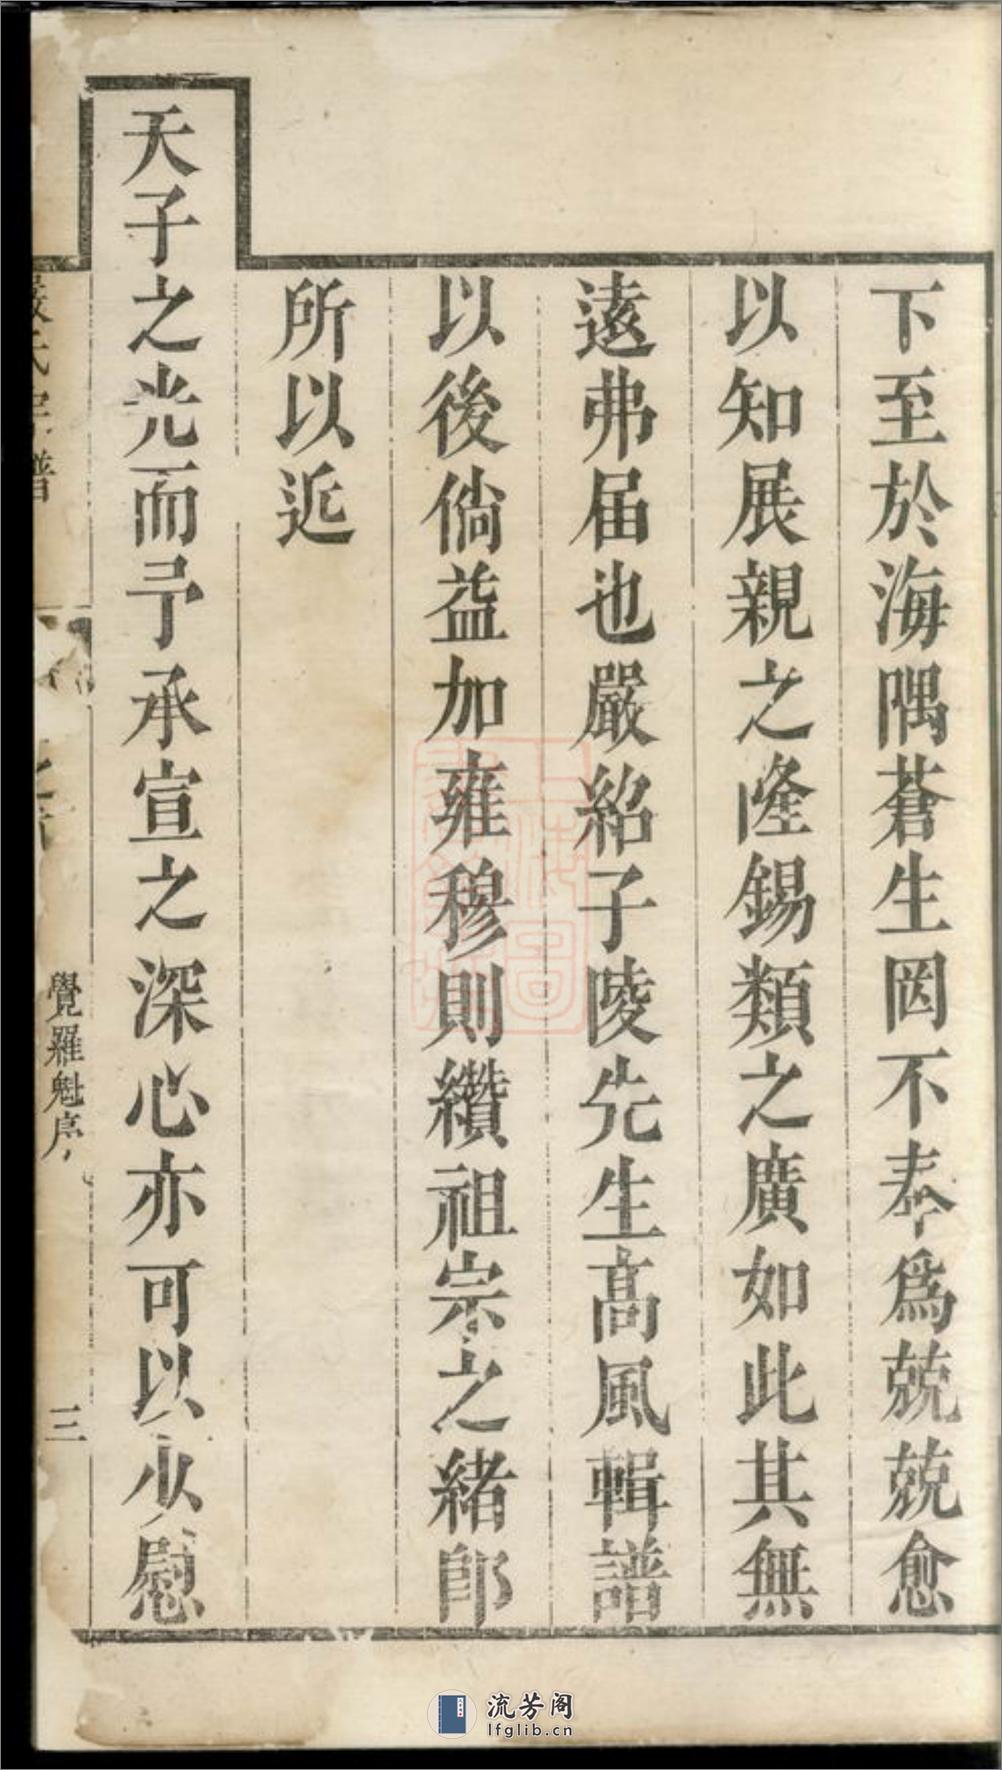 下至於海隅蒼生罔不奉為兢兢愈
以知展親之隆錫類之廣如此其無
遠弗届也嚴紹子陵先生高風輯譜
以後倘益加雍穆則纘祖宗之緒郎
所以近
天子之光而予承宣之深心亦可以少慰
氏宗譜
覺羅魁序
三
流芳阁
lfglib.cn